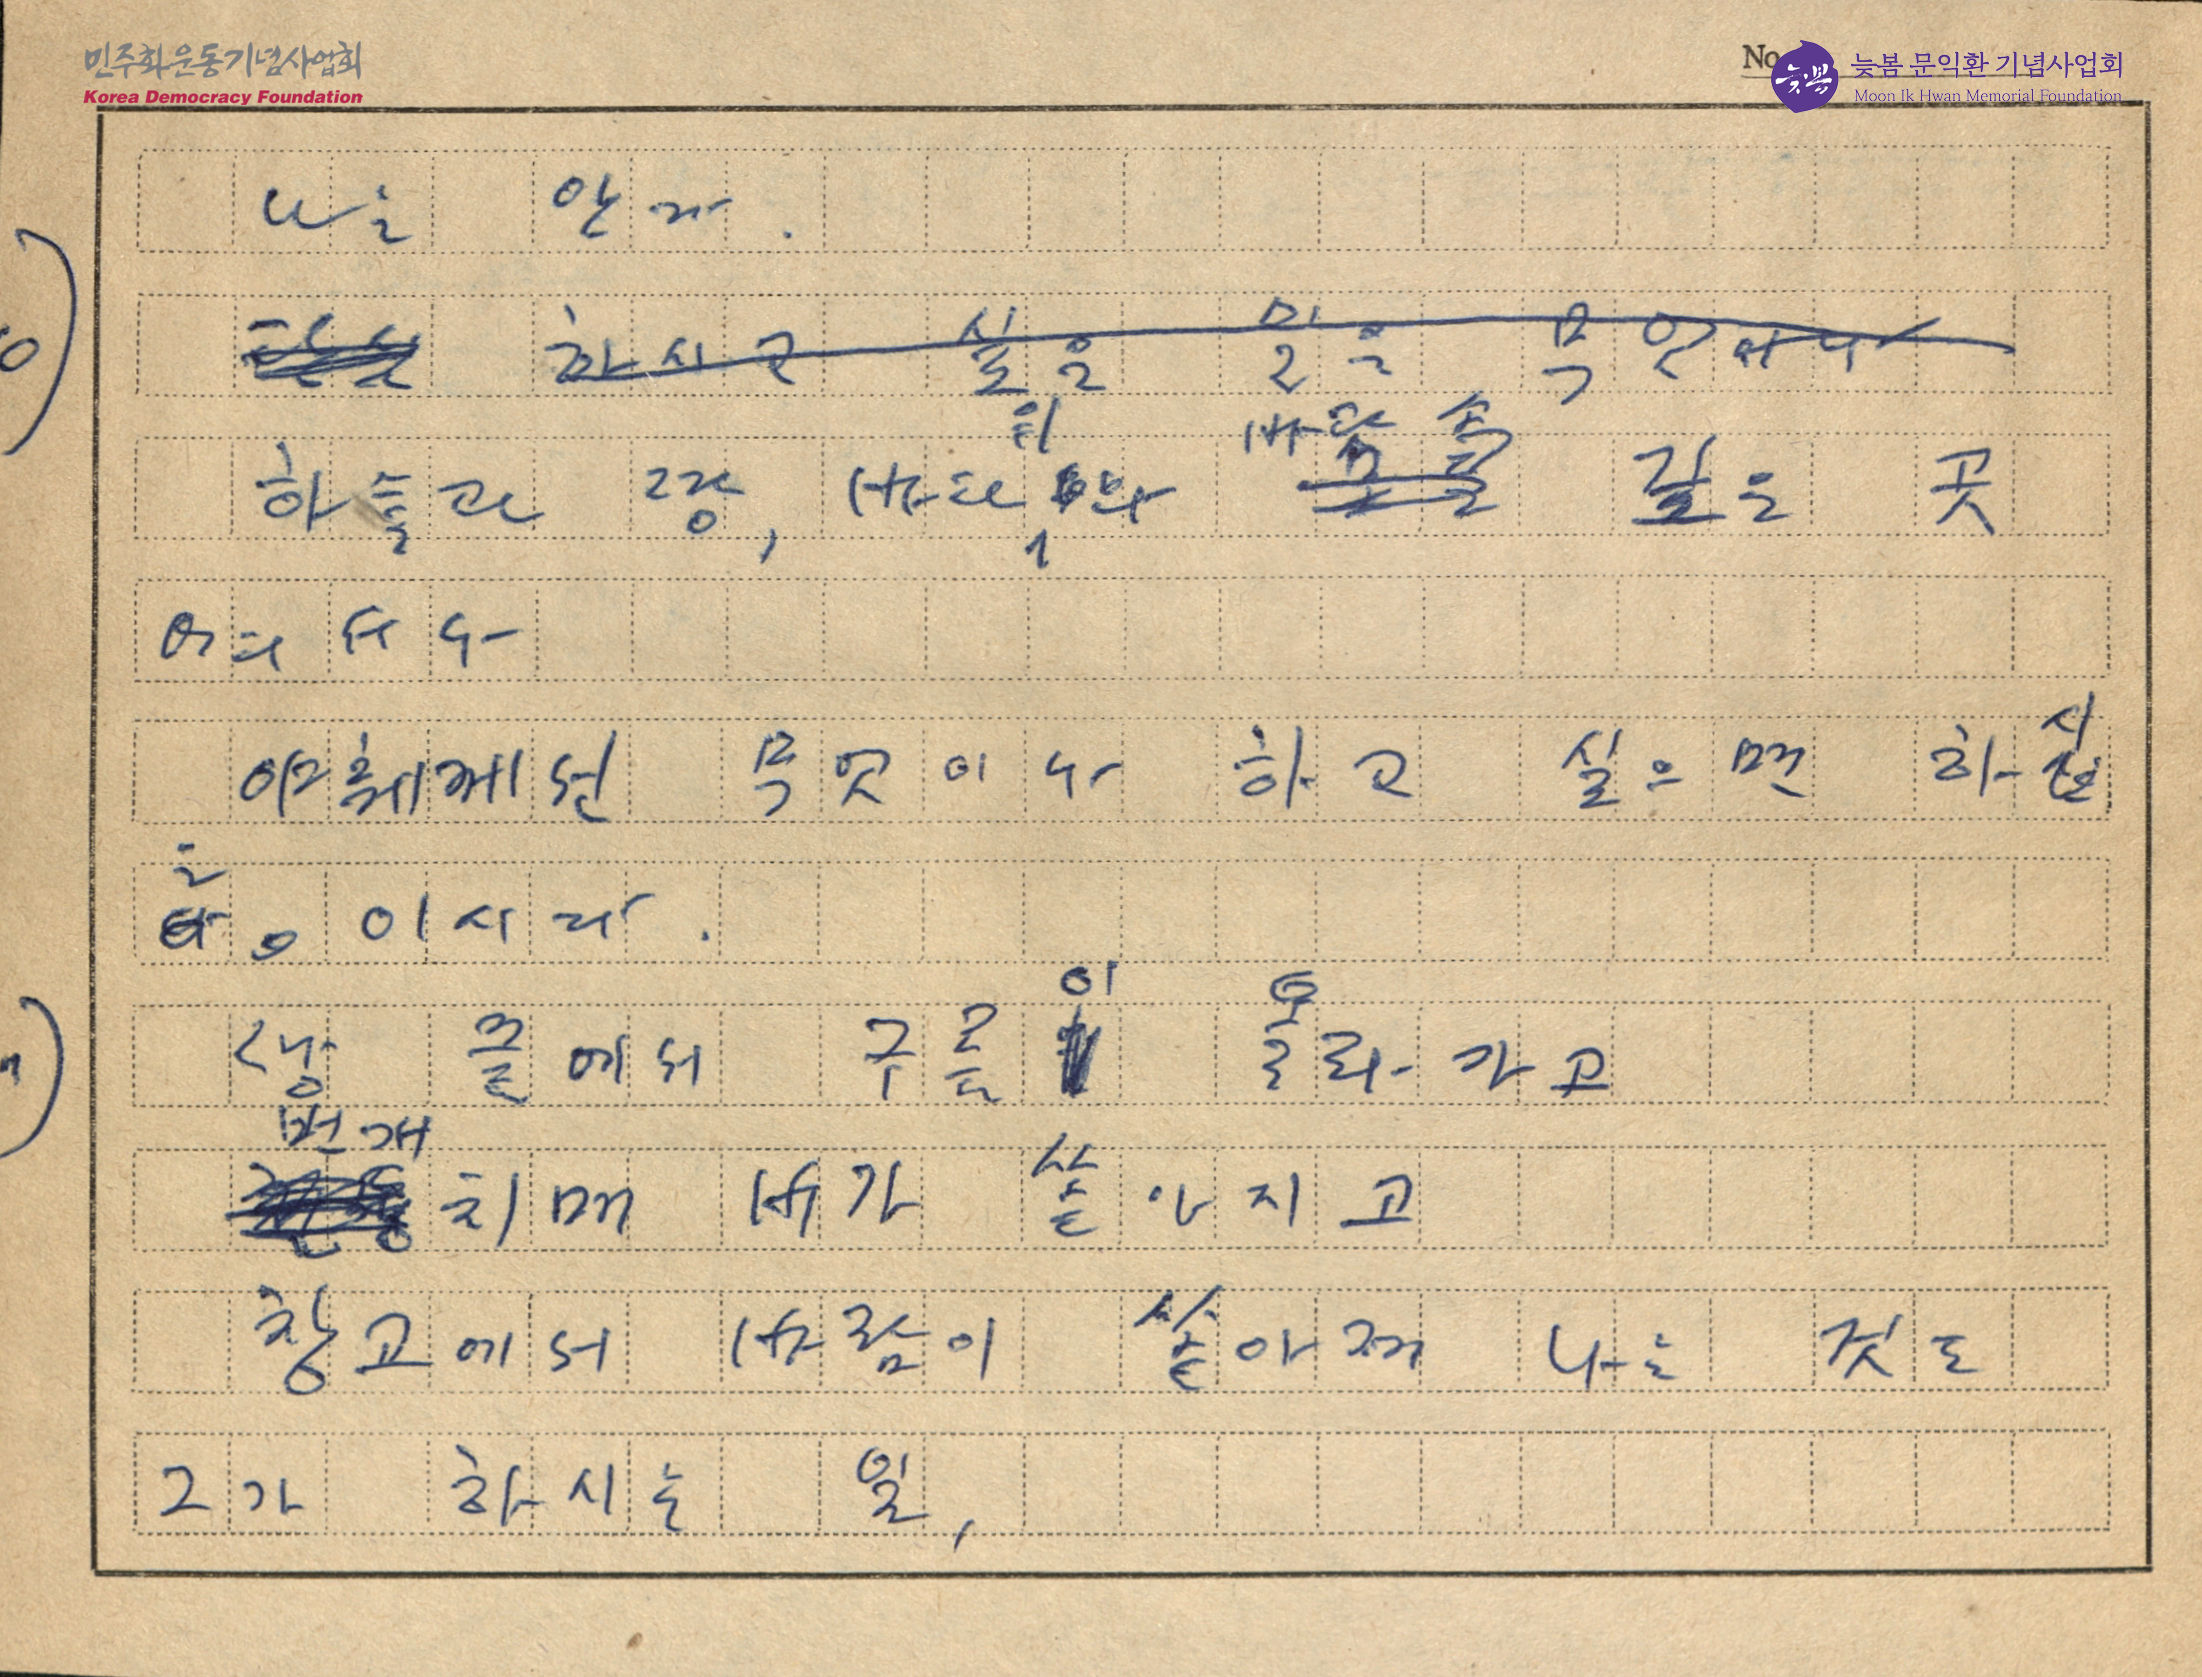 민주화운동기념사업회
Korea Democracy Foundation
No
늦봄
늦봄 문익환 기념사업회
Moon Ik Hwan Memorial Foundation
나는 안다.
하시고 싶은 일은 무엇이나
위 바다 속
하늘과 땅, 바다 깊은 곳
어디서나
야훼께선 무엇이나 하고 싶으면 하시
는 이시다.
이
땅 끝에서 구름 올라가고
번개
치며 비가 쏟아지고
창고에서 바람이 쏟아져 나는 것도
그가 하시는 일,